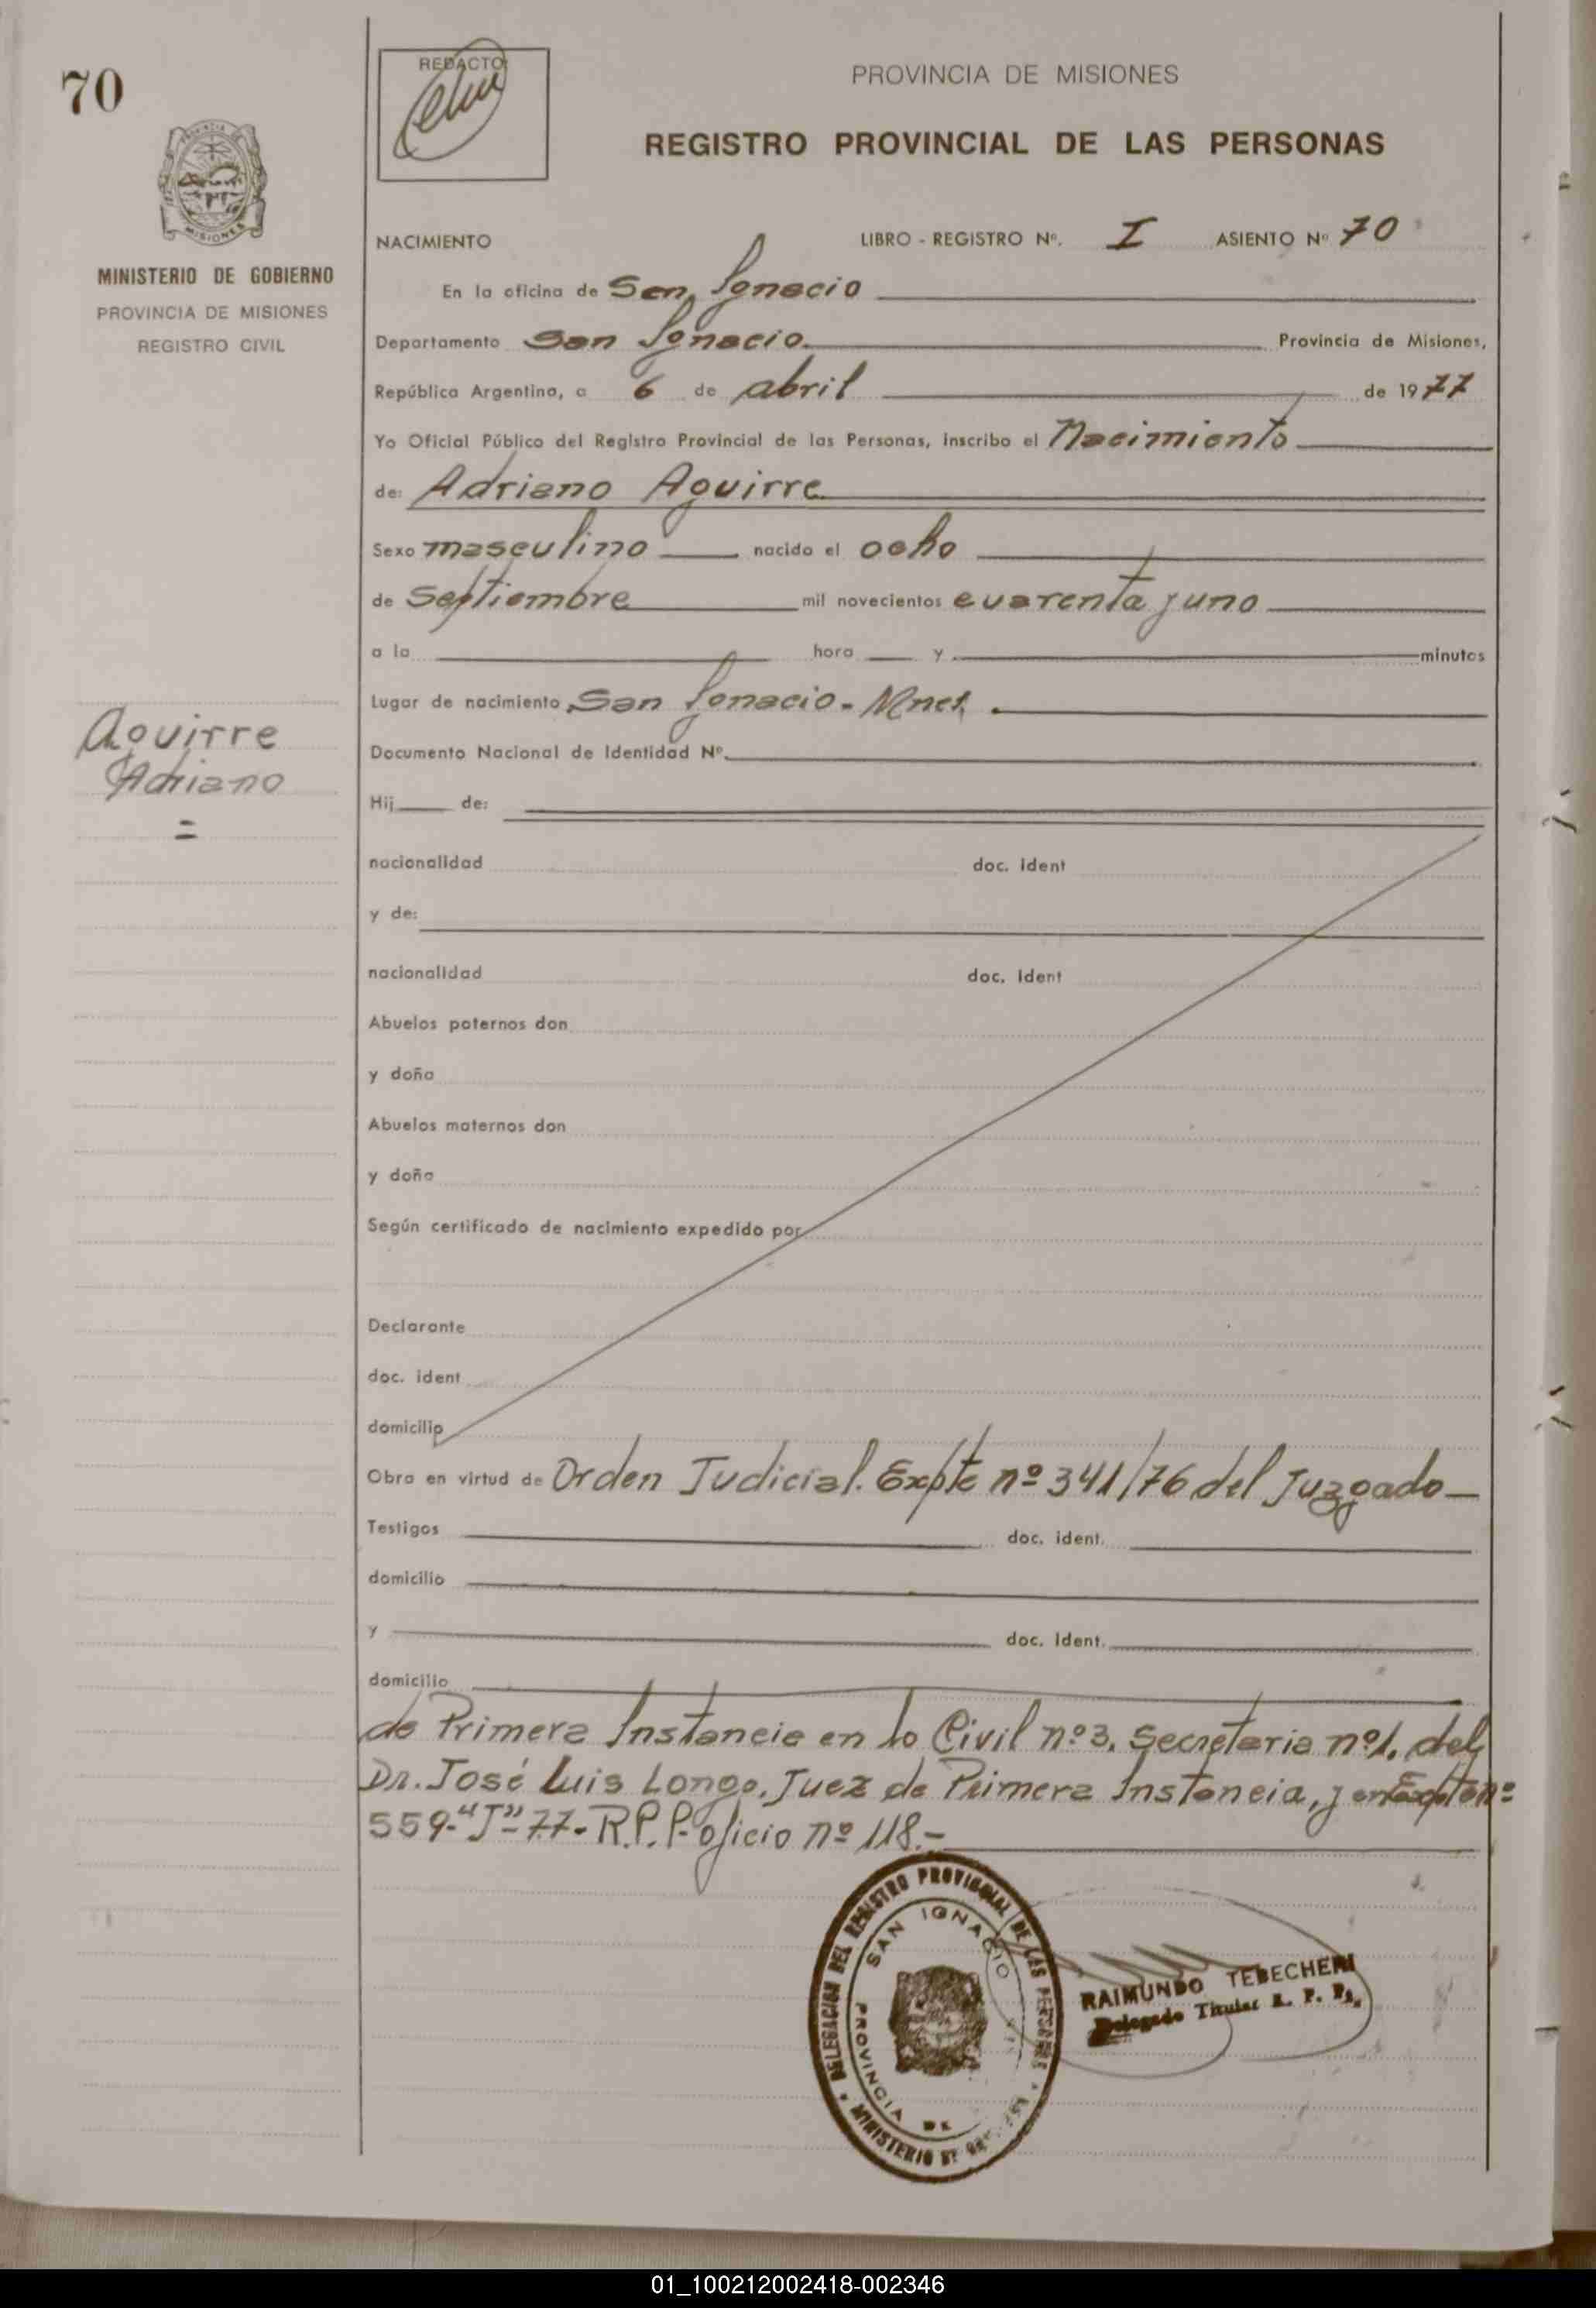 70
REDACTO
PROVINCIA DE MISIONES
REGISTRO PROVINCIAL DE LAS PERSONAS
MISIONES
MINISTERIO DE GOBIERNO
PROVINCIA DE MISIONES
REGISTRO CIVIL
NACIMIENTO LIBRO - REGISTRO Nº. I ASIENTO Nº 70
En la oficina de San Ignacio
Departamento San Ignacio Provincia de Misiones,
República Argentina, a 6 de abril de 1977
Yo Oficial Público del Registro Provincial de las Personas, inscribo el Nacimiento
de: Adriano Aguirre
Sexo masculino nacido el ocho
de Septiembre mil novecientos cuarenta y uno
a la hora y minutos
Lugar de nacimiento San Ignacio - Mnes.
Documento Nacional de Identidad Nº
Aguirre
Adriano
=
Hij de:
nacionalidad doc. ident
y de:
nacionalidad doc. ident
Abuelos paternos don
y doña
Abuelos maternos don
y doña
Según certificado de nacimiento expedido por
Declarante
doc. ident
domicilio
Obra en virtud de Orden Judicial. Expte nº 341/76 del Juzgado
Testigos doc. ident.
domicilio
y doc. ident.
domicilio
de Primera Instancia en lo Civil nº 3. Secretaria nº 1. del
Dr. José Luis Longo. Juez de Primera Instancia, y en Expte nº
559-"J"-77-R.P.P. oficio nº 118.-
DELEGACION DEL REGISTRO PROVINCIAL DE LAS PERSONAS
SAN IGNACIO
PROVINCIA DE
MINISTERIO DE
RAIMUNDO TEBECHERI
Delegado Titular R. P. Ps.
01_100212002418-002346